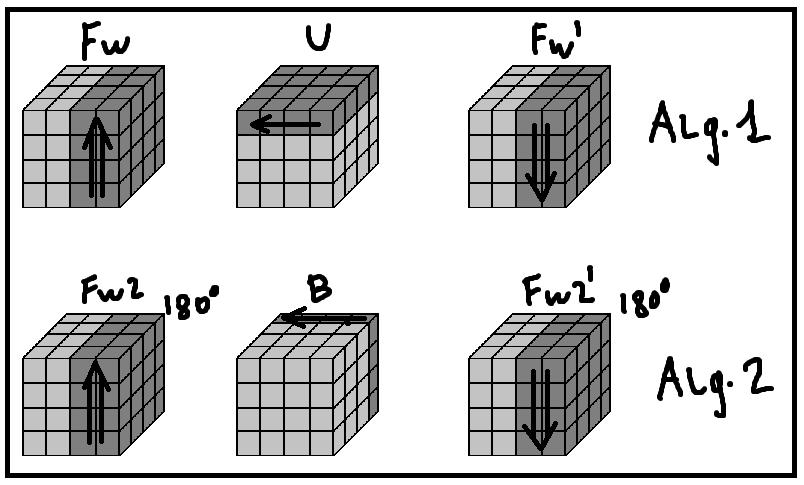 Fw U Fw'
ALg.1
Fw2 180° B Fw2' 180°
ALg.2